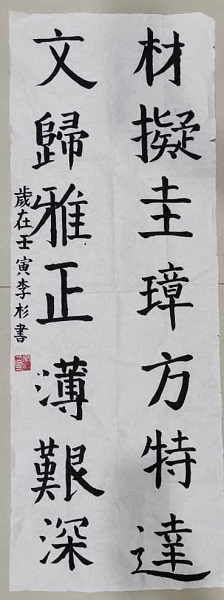 材擬圭璋方特達
文歸雅正薄艱深
歲在壬寅李杉書